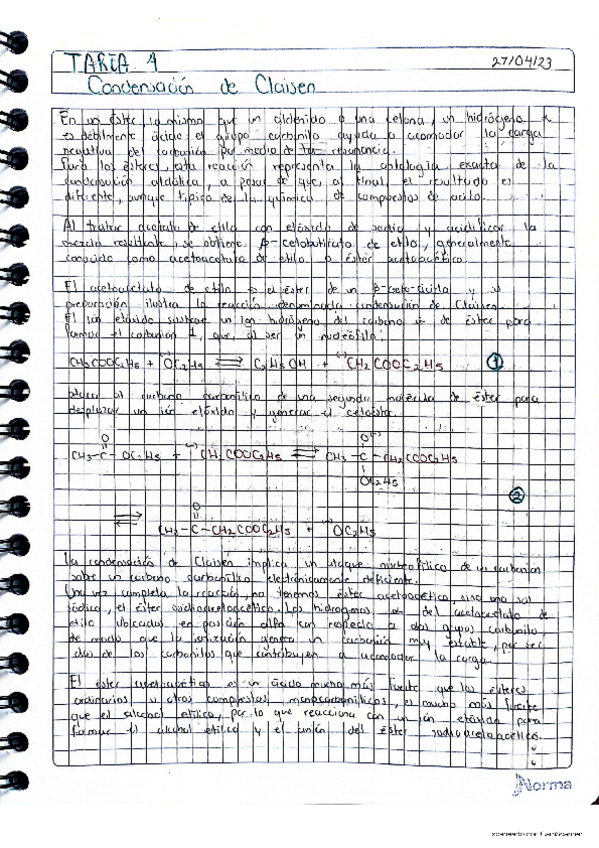 TAREA 1 27/04/23
Condensación de Claisen
En un éster, lo mismo que un aldehído o una cetona, un hidrógeno α
es débilmente ácido: el grupo carbonilo ayuda a acomodar la carga
negativa del carbanión por medio de la resonancia.
Para los ésteres, esta reacción representa la analogía exacta de la
condensación aldólica, a pesar de que, al final, el resultado es
diferente, aunque típico de la química de compuestos de acilo.
Al tratar acetato de etilo con etóxido de sodio y acidificar la
mezcla resultante, se obtiene β-cetobutirato de etilo, generalmente
conocido como acetoacetato de etilo o éster acetoacético.
El acetoacetato de etilo es el éster de un β-ceto-ácido y su
preparación ilustra la reacción denominada condensación de Claisen
El ión etóxido sustrae un ion hidrógeno del carbono α de éster para
formar el carbanión 1, que, al ser un nucleófilo,
CH3COOC2H5 + (-)OC2H5 ⇌ C2H5OH + (-)CH2COOC2H5 1
ataca al carbono carbonílico de una segunda molécula de éster para
desplazar un ión etóxido y generar el cetoéster.
O O(-)
CH3-C-OC2H5 + (-)CH2COOC2H5 ⇌ CH3-C-CH2COOC2H5
OC2H5
2
O
⇌ CH3-C-CH2COOC2H5 + (-)OC2H5
La condensación de Claisen implica un ataque nucleofílico de un carbanión
sobre un carbono carbonílico electrónicamente deficiente.
Una vez completa la reacción, no tenemos éster acetoacético, sino una sal
sódica, el éster sodioacetoacético. Los hidrógenos del acetoacetato de
etilo ubicados en posición alfa con respecto a dos grupos carbonilo,
de modo que la ionización genera un carbanión muy estable, por ser
dos de los carbonilos que contribuyen a acomodar la carga.
El éster acetoacético es un ácido mucho más fuerte que los ésteres
ordinarios u otros compuestos monocarbonílicos, es mucho más fuerte
que el alcohol etílico, por lo que reacciona con un ión etóxido para
formar el alcohol etílico y el anión del éster sodioacetoacético.
Norma